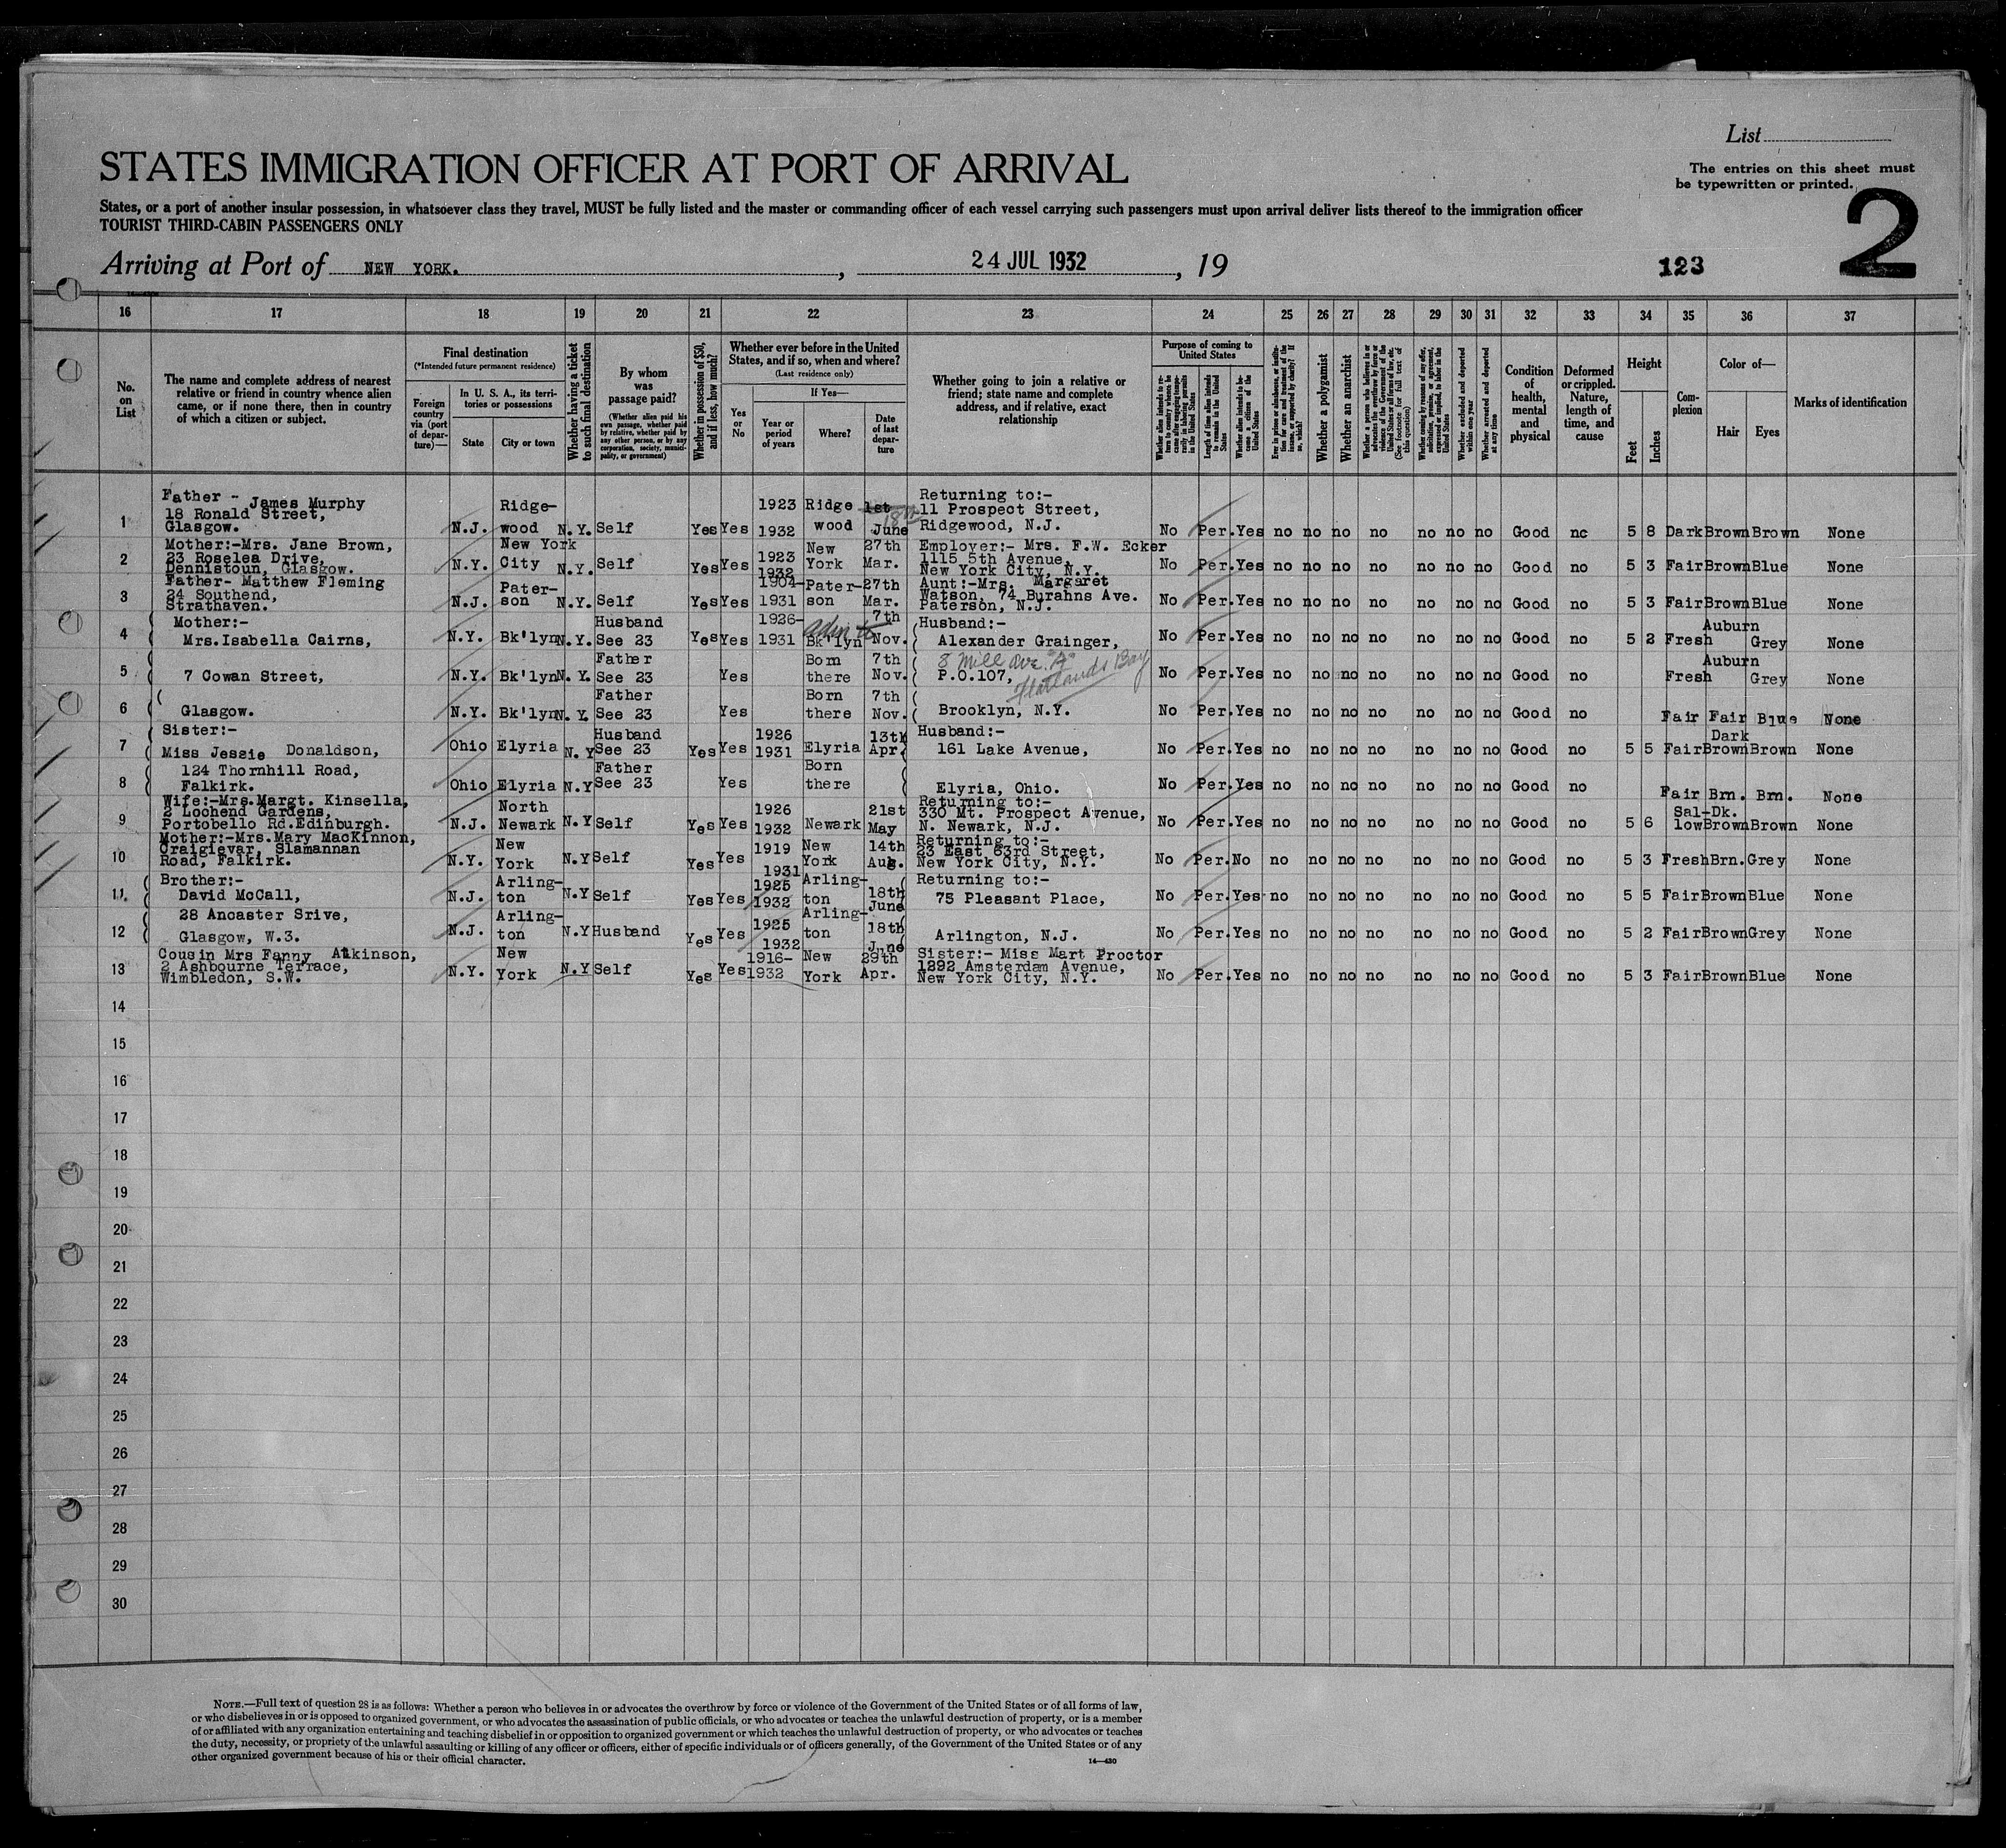 List
STATES IMMIGRATION OFFICER AT PORT OF ARRIVAL
The entries on this sheet must
be typewritten or printed.
2
States, or a port of another insular possession, in whatsoever class they travel, MUST be fully listed and the master or commanding officer of each vessel carrying such passengers must upon arrival deliver lists thereof to the immigration officer
TOURIST THIRD-CABIN PASSENGERS ONLY
Arriving at Port of NEW YORK. , 24 JUL 1932 , 19
123
16 17 18 19 20 21 22 23 24 25 26 27 28 29 30 31 32 33 34 35 36 37
No. on List
The name and complete address of nearest
relative or friend in country whence alien
came, or if none there, then in country
of which a citizen or subject.
Final destination
(*Intended future permanent residence)
Foreign country via (port of departure)—
In U. S. A., its territories or possessions
State
City or town
Whether having a ticket to such final destination
By whom was passage paid?
(Whether alien paid his own passage, whether paid by relative, whether paid by any other person, or by any corporation, society, municipality, or government)
Whether in possession of $50, and if less, how much?
Whether ever before in the United States, and if so, when and where?
(Last residence only)
Yes or No
If Yes—
Year or period of years
Where?
Date of last departure
Whether going to join a relative or
friend; state name and complete
address, and if relative, exact
relationship
Purpose of coming to United States
Whether alien intends to return to country whence he came after engaging temporarily in laboring pursuits in the United States
Length of time alien intends to remain in the United States
Whether alien intends to become a citizen of the United States
Ever in prison or almshouse, or institution for care and treatment of the insane, or supported by charity? If so, which?
Whether a polygamist
Whether an anarchist
Whether a person who believes in or advocates the overthrow by force or violence of the Government of the United States or all forms of law, etc. (See footnote for full text of this question)
Whether coming by reasons of any offer, solicitation, promise, or agreement, expressed or implied, to labor in the United States
Whether excluded and deported within one year
Whether arrested and deported at any time
Condition of health, mental and physical
Deformed or crippled. Nature, length of time, and cause
Height
Feet
Inches
Complexion
Color of—
Hair
Eyes
Marks of identification
1 Father - James Murphy 18 Ronald Street, Glasgow. N.J. Ridge- wood N.Y. Self Yes Yes 1923 1932 Ridge wood 1st 18th June Returning to:- 11 Prospect Street, Ridgewood, N.J. No Per. Yes no no no no no no Good no 5 8 Dark Brown Brown None
2 Mother:-Mrs. Jane Brown, 23 Roselea Drive, Dennistoun, Glasgow. N.Y. New York City N.Y. Self Yes Yes 1923 1932 New York 27th Mar. Employer:- Mrs. F.W. Ecker 1115 5th Avenue, New York City, N.Y. No Per. Yes no no no no no no Good no 5 3 Fair Brown Blue None
3 Father- Matthew Fleming 24 Southend, Strathaven. N.J. Pater- son N.Y. Self Yes Yes 1904- 1931 Pater- son 27th Mar. Aunt:-Mrs. Margaret Watson, 74 Burahns Ave. Paterson, N.J. No Per. Yes no no no no no no no Good no 5 3 Fair Brown Blue None
4 Mother:- Mrs.Isabella Cairns, N.Y. Bk'lyn N.Y. Husband See 23 Yes Yes 1926- 1931 Bk'lyn 7th Nov. Husband:- Alexander Grainger, No Per. Yes no no no no no no no Good no 5 2 Fresh Auburn Grey None
5 7 Cowan Street, N.Y. Bk'lyn N.Y. Father See 23 Yes Born there 7th Nov. 8 Mill Ave. "A" P.O.107, Flatlands Bay No Per. Yes no no no no no no no Good no Fresh Auburn Grey None
6 Glasgow. N.Y. Bk'lyn N.Y. Father See 23 Yes Born there 7th Nov. Brooklyn, N.Y. No Per. Yes no no no no no no no Good no Fair Fair Blue None
7 Sister:- Miss Jessie Donaldson, Ohio Elyria N.Y Husband See 23 Yes Yes 1926 1931 Elyria 13th Apr. Husband:- 161 Lake Avenue, No Per. Yes no no no no no no no Good no 5 5 Fair Dark Brown Brown None
8 124 Thornhill Road, Falkirk. Ohio Elyria N.Y Father See 23 Yes Born there Elyria, Ohio. No Per. Yes no no no no no no no Good no Fair Brn. Brn. None
9 Wife:-Mrs.Margt. Kinsella, 2 Lochend Gardens, Portobello Rd.Edinburgh. N.J. North Newark N.Y Self Yes Yes 1926 1932 Newark 21st May Returning to:- 330 Mt. Prospect Avenue, N. Newark, N.J. No Per. Yes no no no no no no no Good no 5 6 Sal- low Dk. Brown Brown None
10 Mother:-Mrs.Mary MacKinnon, Craigievar, Slamannan Road, Falkirk. N.Y. New York N.Y Self Yes Yes 1919 1931 New York 14th Aug. Returning to:- 23 East 63rd Street, New York City, N.Y. No Per. No no no no no no no no Good no 5 3 Fresh Brn. Grey None
11. Brother:- David McCall, N.J. Arling- ton N.Y Self Yes Yes 1925 1932 Arling- ton 18th June Returning to:- 75 Pleasant Place, No Per. Yes no no no no no no no Good no 5 5 Fair Brown Blue None
12 28 Ancaster Srive, Glasgow, W.3. N.J. Arling- ton N.Y Husband Yes Yes 1925 1932 Arling- ton 18th June Arlington, N.J. No Per. Yes no no no no no no no Good no 5 2 Fair Brown Grey None
13 Cousin Mrs Fanny Atkinson, 2 Ashbourne Terrace, Wimbledon, S.W. N.Y. New York N.Y Self Yes Yes 1916- 1932 New York 29th Apr. Sister:- Miss Mart Proctor 1292 Amsterdam Avenue, New York City, N.Y. No Per. Yes no no no no no no no Good no 5 3 Fair Brown Blue None
14
15
16
17
18
19
20
21
22
23
24
25
26
27
28
29
30
NOTE.—Full text of question 28 is as follows: Whether a person who believes in or advocates the overthrow by force or violence of the Government of the United States or of all forms of law,
or who disbelieves in or is opposed to organized government, or who advocates the assassination of public officials, or who advocates or teaches the unlawful destruction of property, or is a member
of or affiliated with any organization entertaining and teaching disbelief in or opposition to organized government or which teaches the unlawful destruction of property, or who advocates or teaches
the duty, necessity, or propriety of the unlawful assaulting or killing of any officer or officers, either of specific individuals or of officers generally, of the Government of the United States or of any
other organized government because of his or their official character.
14—430